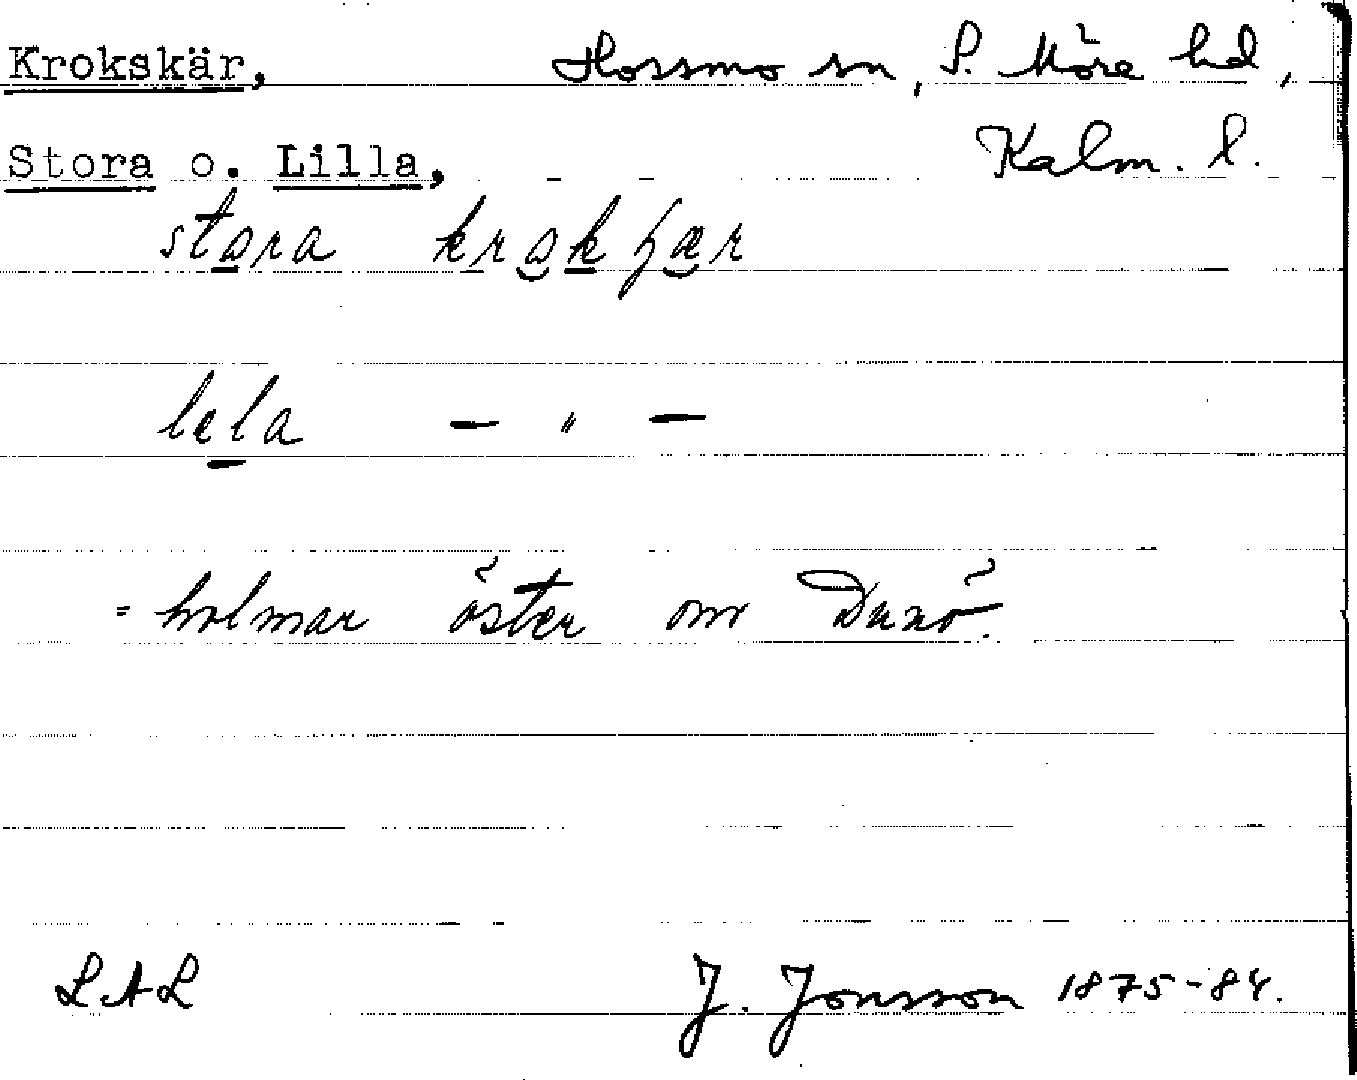 Krokskär, Hossmo sn, S. Möre hd,
Stora o. Lilla, Kalm. l.
stora krokʃær
lela - " -
= holmar öster om Dunö.
LAL J. Jonsson 1875-84.